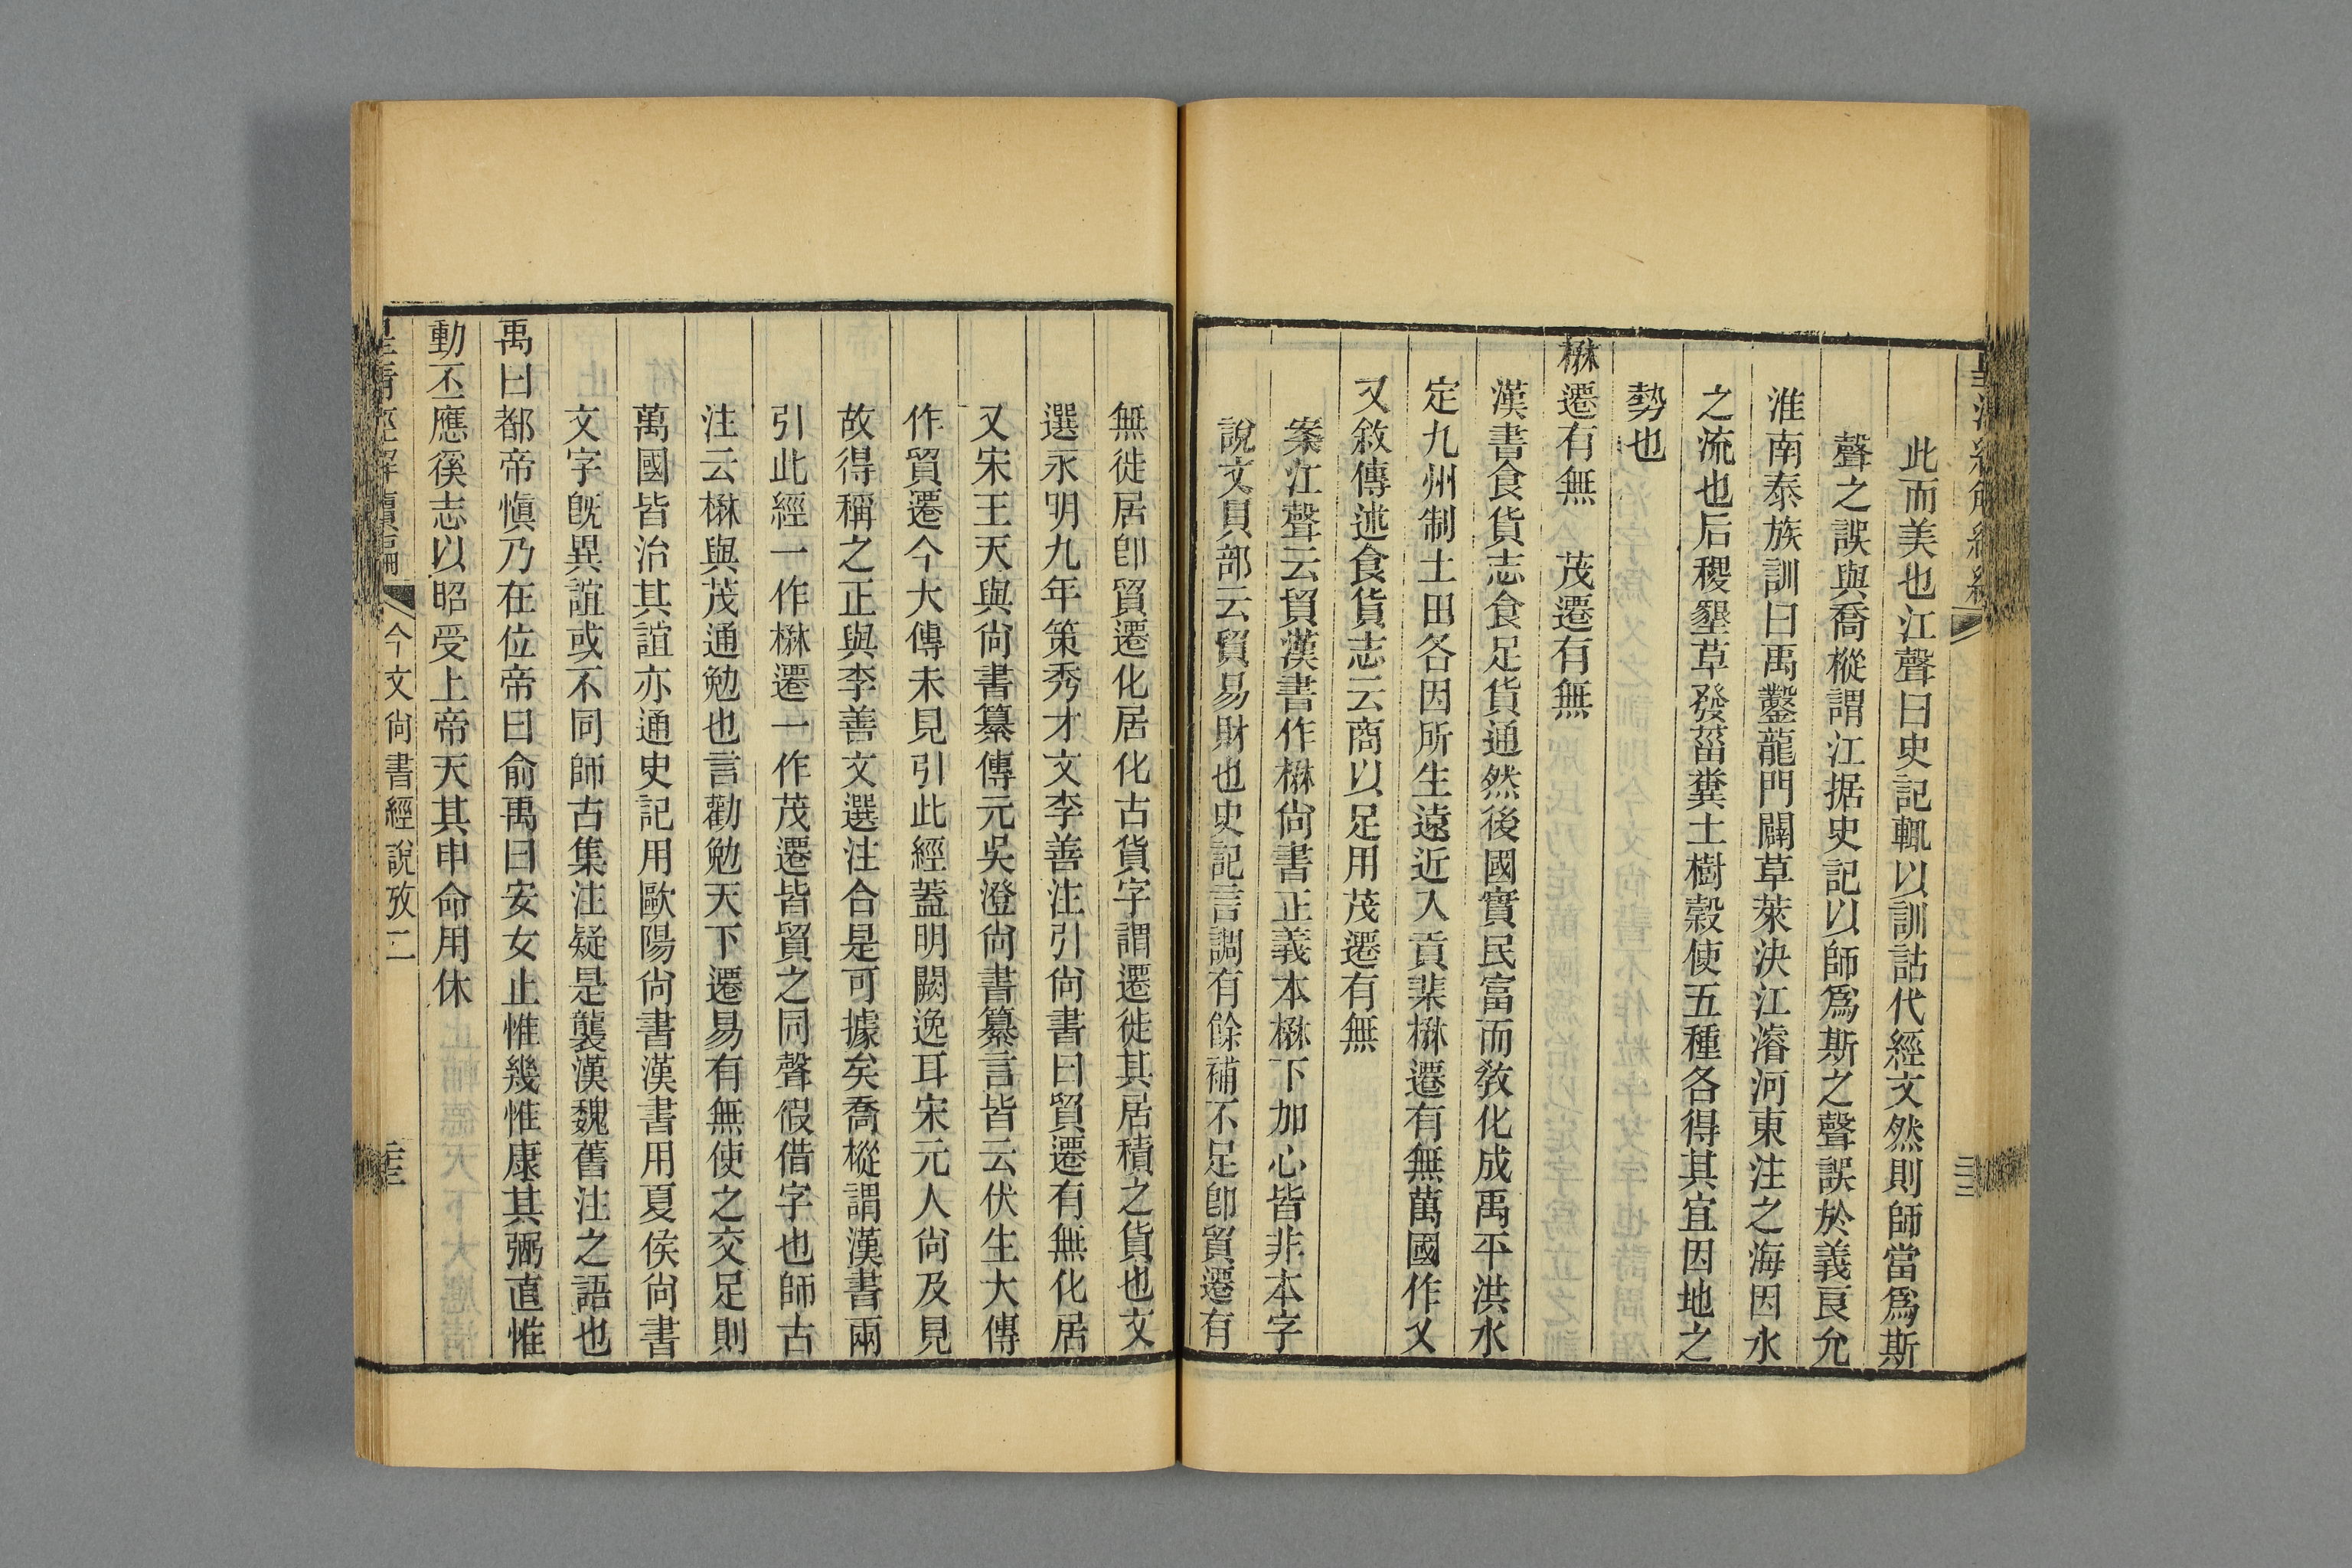 此而美也江聲曰史記輒以訓詁代經文然則師當爲斯
聲之誤與喬樅謂江据史記以師爲斯之聲誤於義良允
淮南泰族訓曰禹鑿龍門闢草萊決江濬河東注之海因水
之流也后稷墾草發菑糞土樹榖使五種各得其宜因地之
勢也
楙遷有無 茂遷有無
漢書食貨志食足貨通然後國實民富而敎化成禹平洪水
定九州制土田各因所生遠近入貢棐楙遷有無萬國作乂
又敘傳述食貨志云商以足用茂遷有無
案江聲云貿漢書作楙尙書正義本楙下加心皆非本字
說文貝部云貿易財也史記言調有餘補不足卽貿遷有
無徙居卽貿遷化居化古貨字謂遷徙其居積之貨也文
選永明九年策秀才文李善注引尙書曰貿遷有無化居
又宋王天與尙書纂傳元吳澄尙書纂言皆云伏生大傳
作貿遷今大傳未見引此經蓋明闕逸耳宋元人尙及見
故得稱之正與李善文選注合是可據矣喬樅謂漢書兩
引此經一作楙遷一作茂遷皆貿之同聲假借字也師古
注云楙與茂通勉也言勸勉天下遷易有無使之交足則
萬國皆治其誼亦通史記用歐陽尙書漢書用夏侯尙書
文字旣異誼或不同師古集注疑是襲漢魏舊注之語也
禹曰都帝愼乃在位帝曰俞禹曰安女止惟幾惟康其弼直惟
動丕應徯志以昭受上帝天其申命用休
皇淸經解續編 今文尙書經說攷二